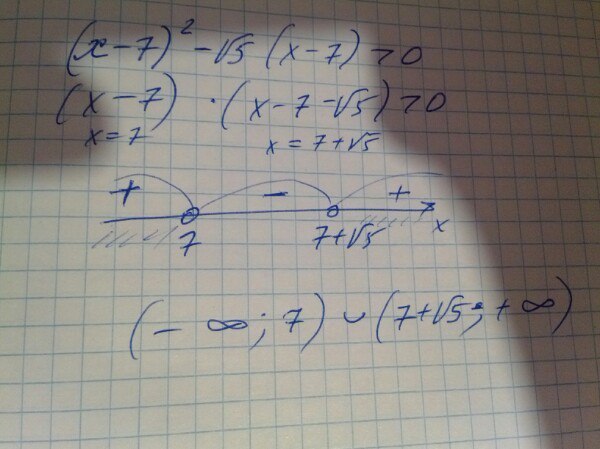 (x-7)² - √5 (x-7) > 0
(x-7) · (x-7-√5) > 0
x=7 x=7+√5
+ - +
7 7+√5 x
(-∞; 7) ∪ (7+√5; +∞)